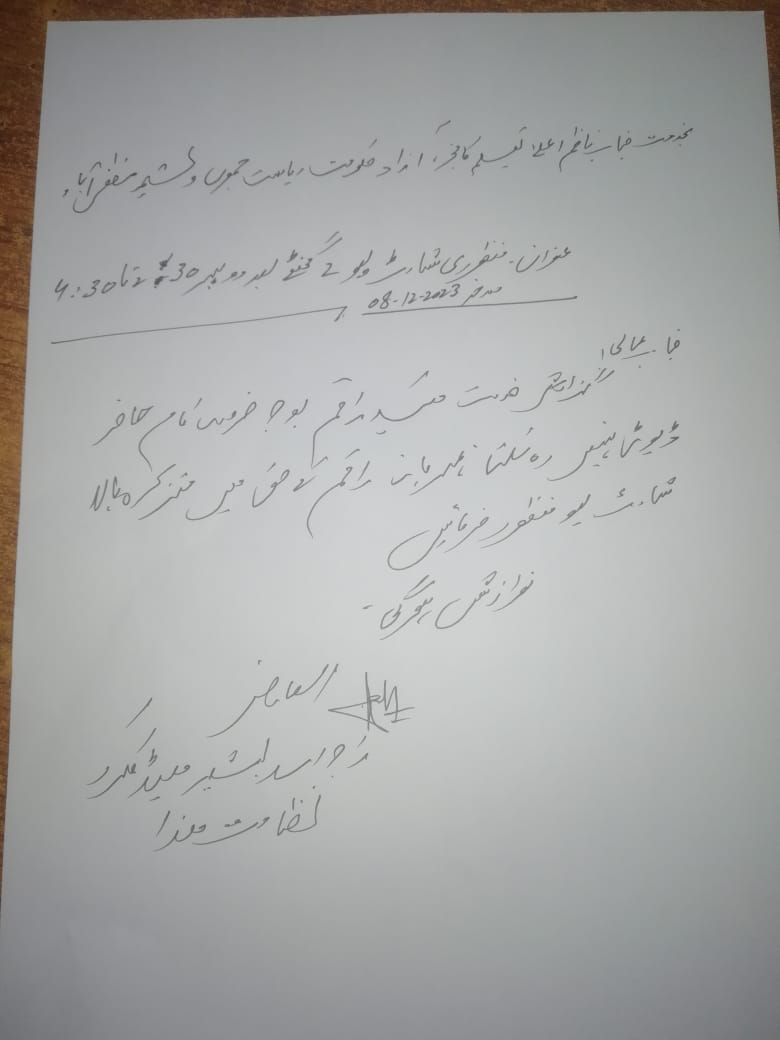 بخدمت جناب ناظم اعلیٰ تعلیم کالجز آزاد حکومت ریاست جموں و کشمیر مظفرآباد
عنوان۔ منظوری شارٹ لیو 2 گھنٹے بعد دوپہر 2:30 تا 4:30
مورخہ 08-12-2023
جناب عالی!
گزارش خدمت ہیکہ راقم بوجہ ضروری کام حاضر
ڈیوٹی نہیں رہ سکتا مہربانی راقم کے حق میں متذکرہ بالا
شارٹ لیو منظور فرمائیں
نوازش ہوگی۔
العارض
راجہ اسد بشیر ہیڈ کلرک
نظامت ھذا